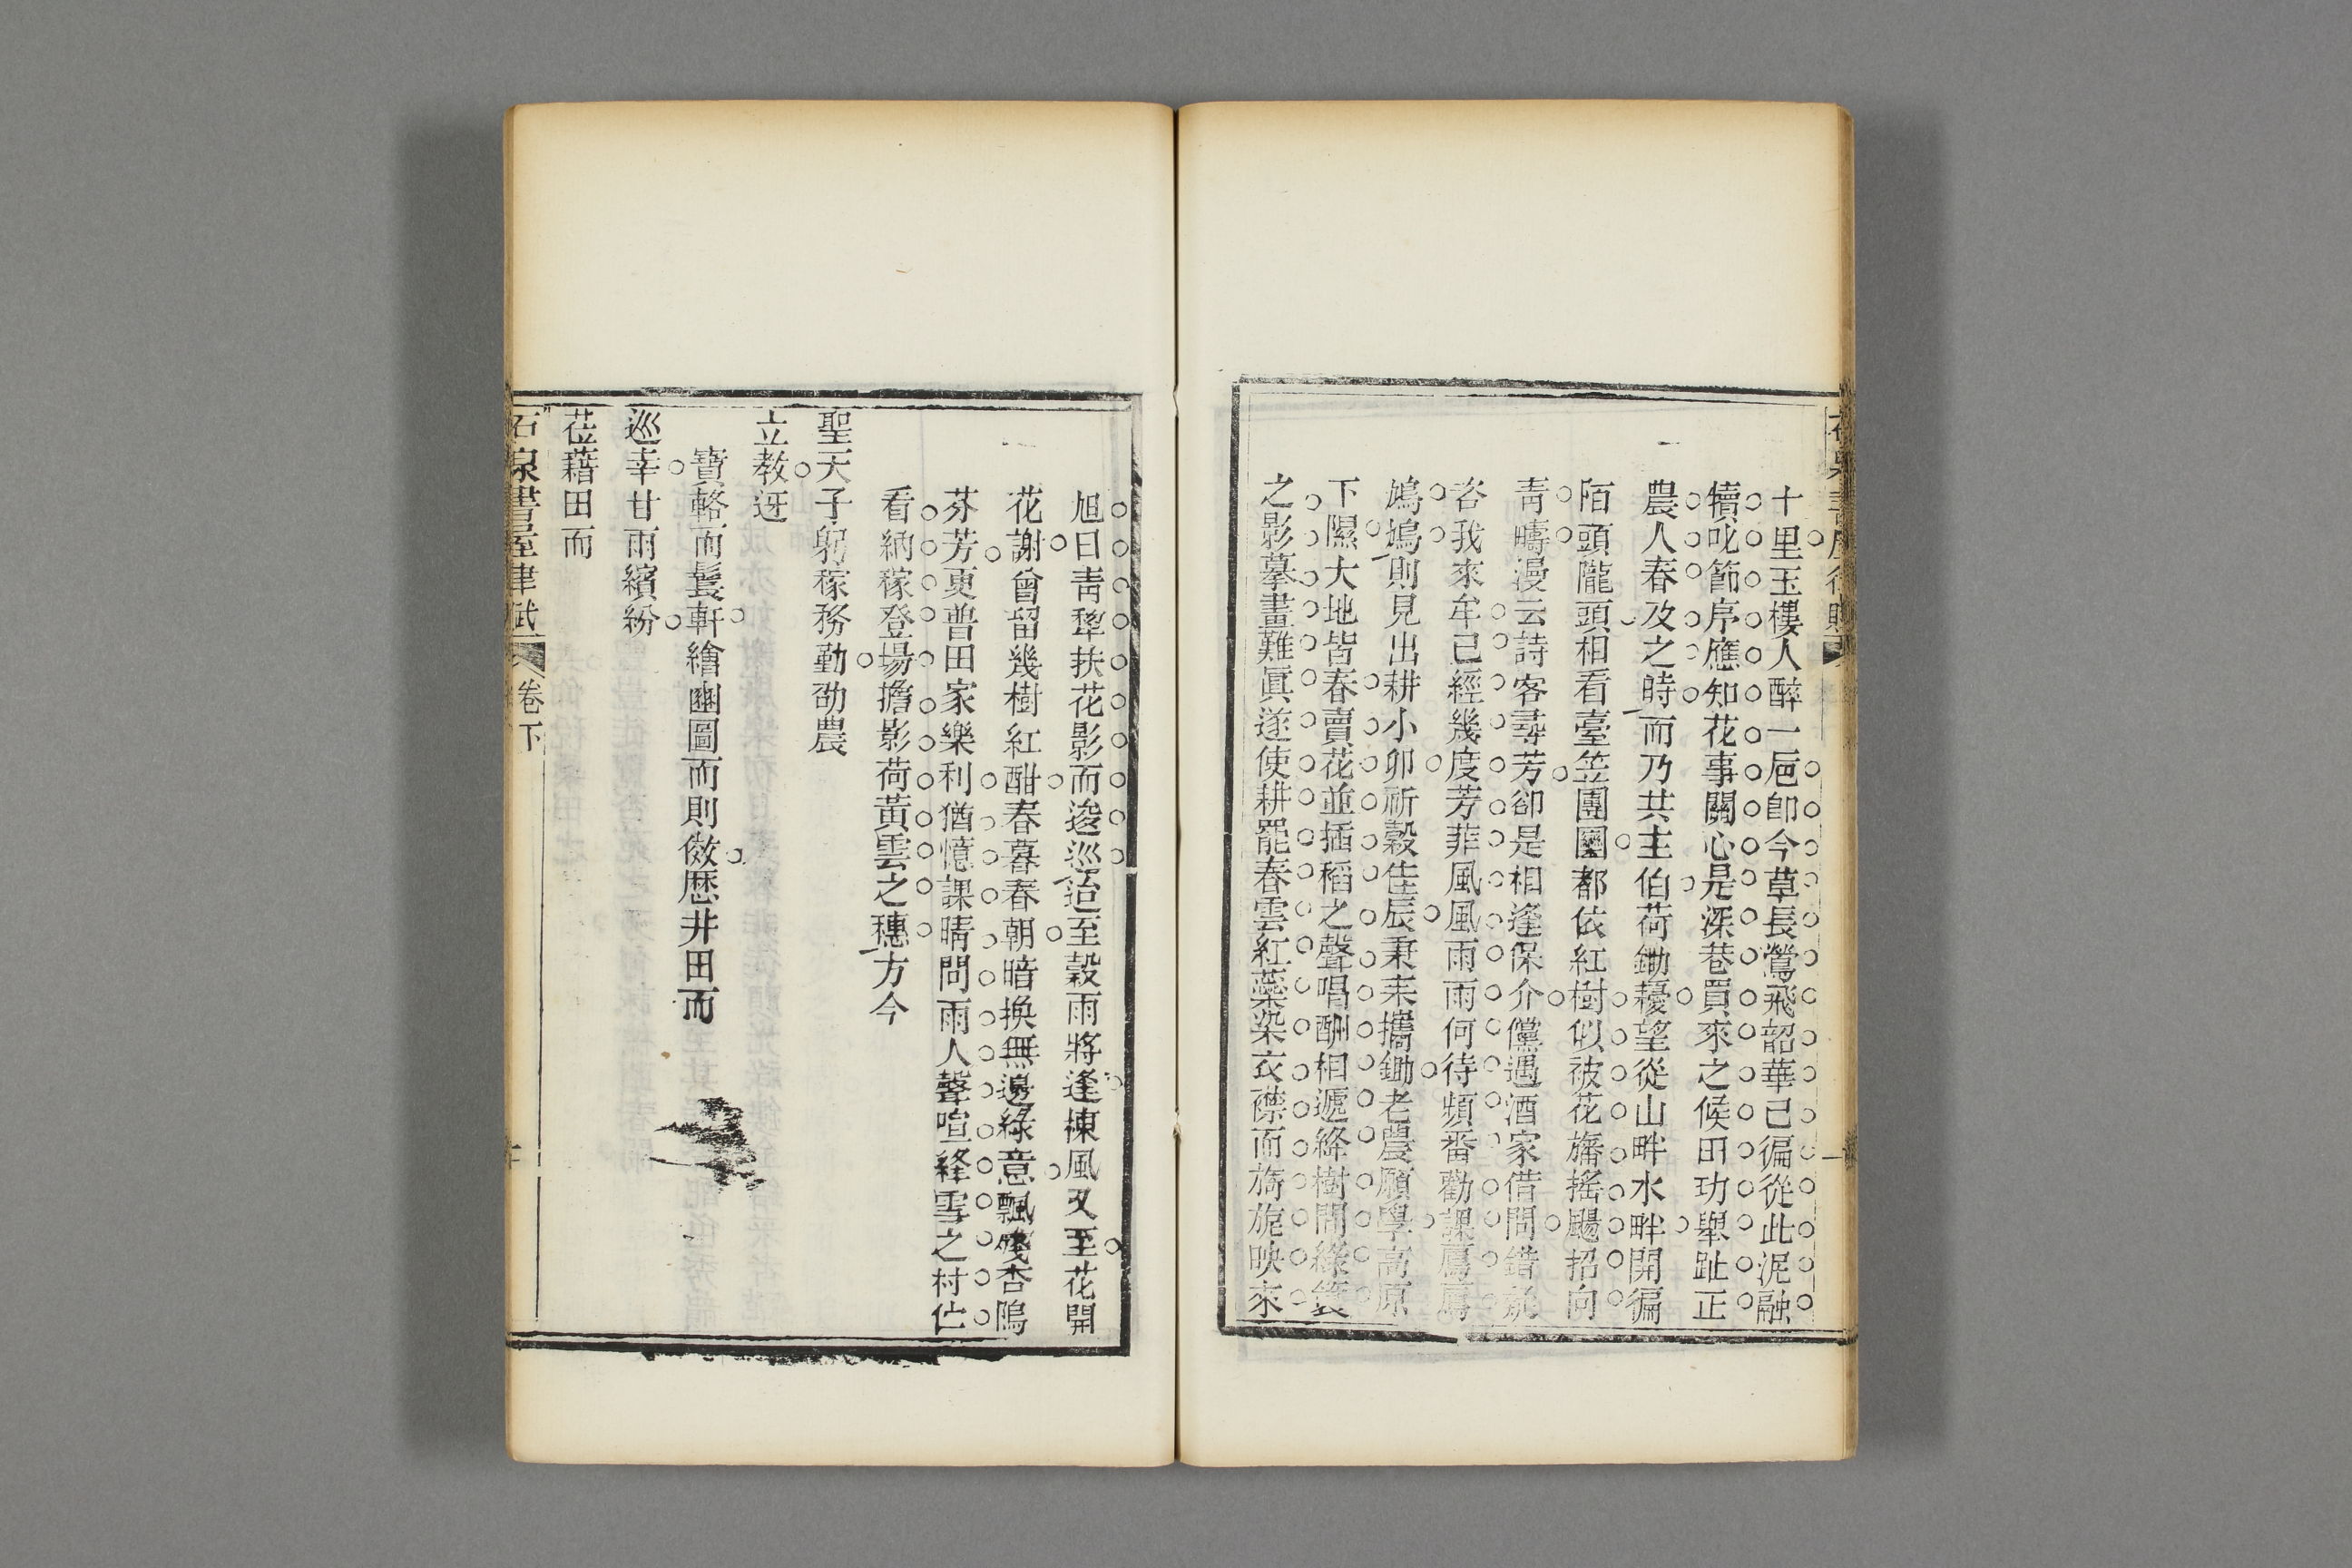 十里玉樓人醉一巵卽今草長鶯飛韶華己徧從此泥融
犢叱節序應知花事關心是深巷買來之候田功舉趾正
農人春及之時而乃共主伯荷鋤耰望從山畔水畔開徧
陌頭隴頭相看臺笠團圞都依紅樹似被花旛搖颺招向
靑疇漫云詩客尋芳卻是相逢保介儻遇酒家借問錯
我來牟已經幾度芳菲風風雨雨何待頻番勸課鳸鳸
鳩鳩則見出耕小卯祈穀佳辰秉耒攜鋤老農願學高原
下隰大地皆春賣花並插稻之聲唱酬相遞絳樹間綠簑
之影摹畫難眞遂使耕罷春雲紅蘂染衣襟而旖旎映來
旭日靑犂扶花影而逡巡迨至穀雨將逢楝風又至花開
花謝曾留幾樹紅酣春暮春朝暗換無邊綠意飄殘杏隖
芬芳更普田家樂利猶憶課晴問雨人聲喧絳雪之村伫
看納稼登場擔影荷黃雲之穗方今
聖天子躬稼務勤劭農
立教迓
寶輅而鬟軒繪豳圖而則倣歷井田而
巡幸甘雨繽紛
莅藉田而
石泉書屋律賦
卷下